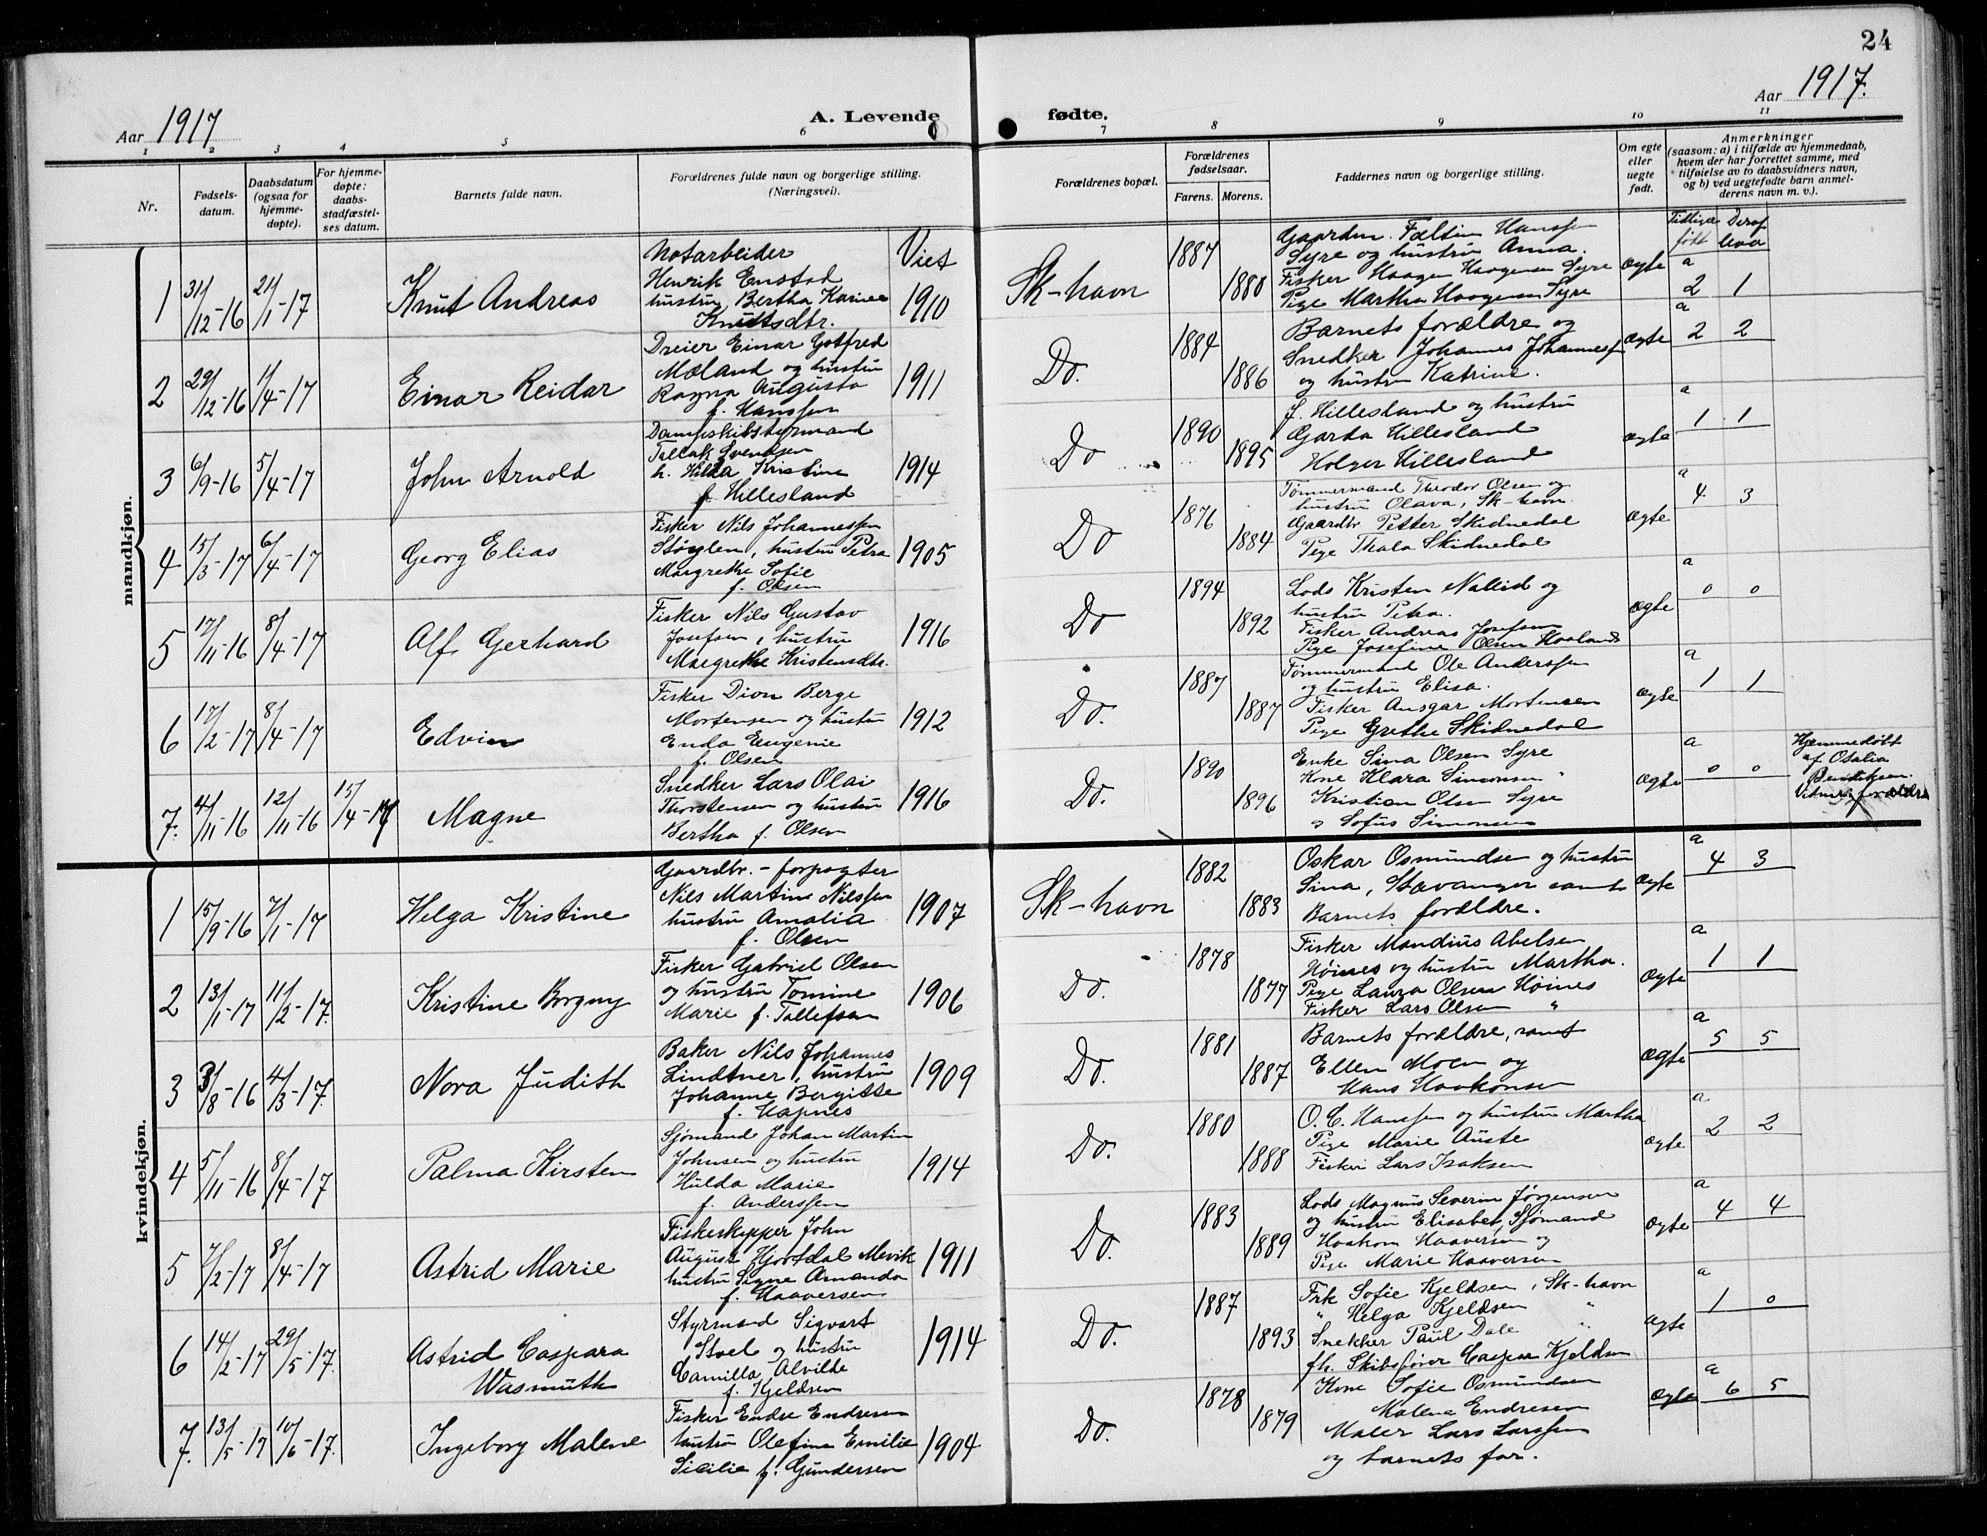 24
Aar 1917
A. Levende fødte.
Aar 1917.
1 2 3 4 5 6 7 8 9 10 11
Nr.
Fødsels-
datum.
Daabsdatum
(ogsaa for
hjemme-
døpte).
For hjemme-
døpte:
daabs-
stadfæstel-
ses datum.
Barnets fulde navn.
Forældrenes fulde navn og borgerlige stilling.
(Næringsvei).
Forældrenes bopæl.
Forældrenes
fødselsaar.
Farens. Morens.
Faddernes navn og borgerlige stilling.
Om egte
eller
uegte
født.
Anmerkninger
(saasom: a) i tilfælde av hjemmedaab,
hvem der har forrettet samme, med
tilføielse av to daabsvidners navn,
og b) ved uegtefødte barn anmel-
derens navn m. v.).
Tidligere født Deraf leva
Viet
mandkjøn.
1 31/12-16 21/1-17 Knut Andreas
Notarbeider
Henrik Enstad
hustru Bertha Karine
Knutsdtr.
1910 Sk-havn 1887 1880
Gaardm. Faltin Hanssen
Syre og hustru Anna.
Fisker Haagen Haagensen Syre
Pige Martha Haagensen Syre
ægte a 2 1
2 29/12-16 1/4-17 Einar Reidar
Dreier Einar Gotfred
Mæland og hustru
Ragna Augusta
f. Hanssen
1911 Do. 1884 1886
Barnets forældre og
Snedker Johannes Johannessen
og hustru Katrine.
ægte a 2 2
3 6/9-16 5/4-17 John Arnold
Dampskibstyrmand
Tallak Svendsen
h. Hilda Kristine
f. Hillesland
1914 Do 1890 1895
f. Hillesland og hustru
Garda Hillesland
Holger Hillesland
ægte a 1 1
4 15/3-17 6/4-17 Georg Elias
Fisker Nils Johannessen
Støylen, hustru Petra
Margrethe Sofie
f. Olsen
1905 Do 1876 1884
Tømmermand Theodor Olsen og
hustru Olava, Sk-havn.
Gaardbr. Petter Skidnedal
Pige Thala Skidnedal
ægte a 4 3
5 17/11-16 8/4-17 Alf Gerhard
Fisker Nils Gustav
Josefsen, hustru
Margrethe Kristensdtr.
1916 Do 1894 1892
Lods Kristen Nalleid og
hustru Petra.
Fisker Andreas Josefsen
Pige Josefine Olsen Haaland
ægte a 0 0
6 17/2-17 8/4-17 Edvin
Fisker Dion Berge
Mortensen og hustru
Enda Eugenie
f. Olsen
1912 Do. 1887 1887
Tømmermand Ole Anderssen
og hustru Elisa.
Fisker Ansgar Mortensen
Pige Grethe Skidnedal
ægte a 1 1
7. 4/11-16 12/11-16 15/4-17 Magne
Snedker Lars Olai
Thorstensen og hustru
Bertha f. Olsen
1916 Do. 1890 1896
Enke Sina Olsen Syre
Kone Klara Simonsen "
Kristian Olsen Syre
og Sofus Simonsen
ægte a 0 0
Hjemmedøbt
af Otalia
Bendiksen.
Vidner: forældre
kvindekjøn.
1 15/9-16 7/1-17 Helga Kristine
Gaardbr. - forpagter
Nils Martin Nilssen
hustru Amalia
f. Olsen
1907 Sk-havn 1882 1883
Oskar Osmundsen og hustru
Sina, Stavanger samt
Barnets forældre.
ægte a 4 3
2 13/1-17 11/2-17. Kristine Borgny
Fisker Gabriel Olsen
og hustru Tomine
Marie f. Tallefsen
1906 Do. 1878 1877
Fisker Mandius Abelsen
Høines og hustru Martha.
Pige Laura Olsen Høines
Fisker Lars Olsen "
ægte a 1 1
3 3/8-16 4/3-17. Nora Judith
Baker Nils Johannes
Lindtner, hustru
Johanne Bergitte
f. Hapnes
1909 Do. 1881 1887
Barnets forældre, samt
Ellen Moen og
Hans Haakonsen
ægte a 5 5
4 5/11-16 8/4-17 Palma Kirsten
Sjømand Johan Martin
Johnsen og hustru
Hulda Marie
f. Anderssen
1914 Do. 1880 1888
O. C. Hanssen og hustru Martha
Pige Marie Auste
Fisker Lars Isaksen
ægte a 2 2
5 7/2-17 8/4-17 Astrid Marie
Fiskeskipper John
August Hjortdal Mevik
hustru Signe Amanda
f. Haaversen
1911 Do. 1883 1889
Lods Magnus Severin Jørgensen
og hustru Elisabet, Sjømand
Haakon Haaversen og
Pige Marie Haaversen
ægte a 4 4
6 14/2-17 29/5-17. Astrid Caspara
Wasmuth
Styrmand Sigvart
Stoel og hustru
Camilla Alvilde
f. Kjeldsen
1914 Do. 1887 1893
Frk Sofie Kjeldsen, Sk-havn
" Helga Kjeldsen "
Snekker Paul Dale "
fh. Skibsfører Caspar Kjeldsen
ægte a 1 0
7. 13/5-17 10/6-17. Ingeborg Malene
Fisker Endre Endresen
hustru Olefine Emilie
Sicilie f. Gundersen
1904 Do. 1878 1879
Kone Sofie Osmundsen
Malena Endresen
Maler Lars Larssen
og barnets far.
ægte a 6 5